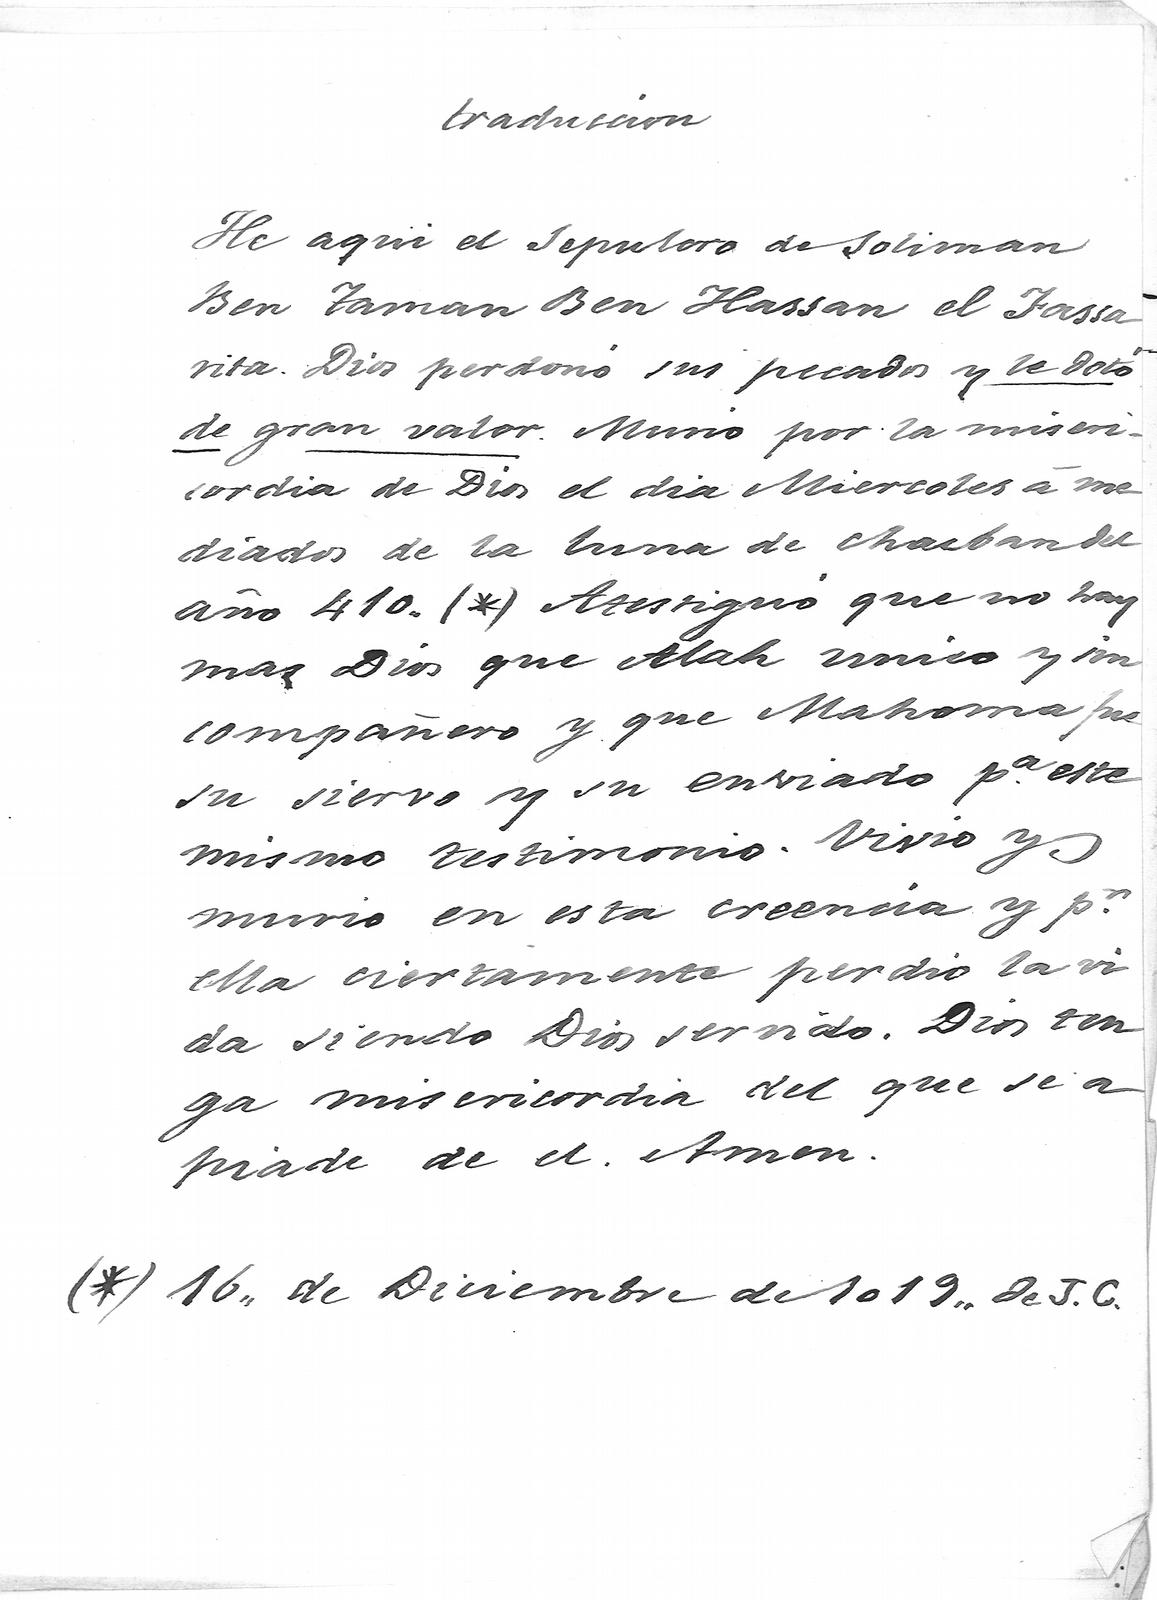 traduccion
He aqui el Sepulcro de Soliman
Ben Zaman Ben Hassan el Fassa
rita. Dios perdonó sus pecados y le dotó
de gran valor. Murio por la miseri-
cordia de Dios el dia Miercoles á me
diados de la luna de chaeban del
año 410. (*) Atestiguó que no hay
mas Dios que Alah unico y sin
compañero y que Mahoma fue
su siervo y su enviado pª este
mismo testimonio. Vivio y
murio en esta creencia y pr.
ella ciertamente perdio la vi
da siendo Dios servido. Dios ten
ga misericordia del que se a
piade de el. Amen.
(*) 16.. de Diciembre de 1019.. de J. C.